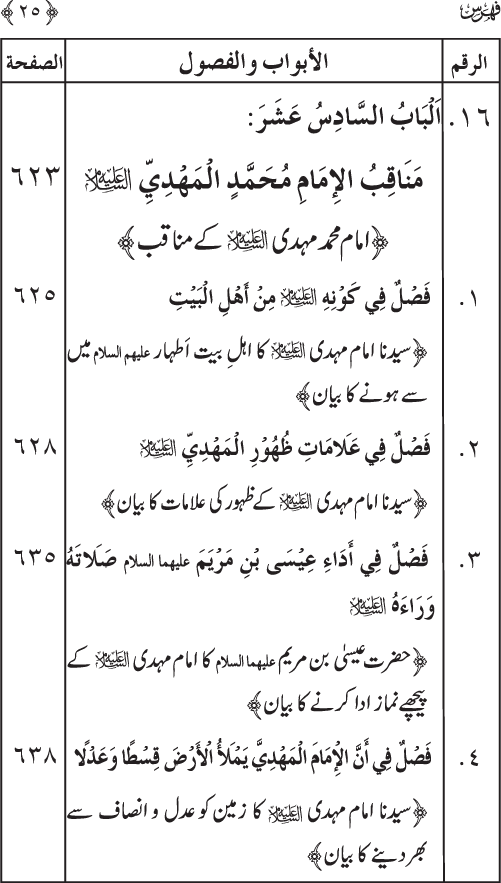 فہرس ﴿۲۵﴾
الرقم الأبواب والفصول الصفحة
١٦. اَلْبَابُ السَّادِسُ عَشَرَ:
مَنَاقِبُ الإِمَامِ مُحَمَّدٍ الْمَهْدِيِّ عليه السلام ٦٢٣
﴿امام محمد مہدی علیہ السلام کے مناقب﴾
١. فَصْلٌ فِي كَوْنِهِ عليه السلام مِنْ أَهْلِ الْبَيْتِ ٦٢٥
﴿سیدنا امام مہدی علیہ السلام کا اہلِ بیت اَطہار علیہم السلام میں
سے ہونے کا بیان﴾
٢. فَصْلٌ فِي عَلَامَاتِ ظُهُوْرِ الْمَهْدِيِّ عليه السلام ٦٢٨
﴿سیدنا امام مہدی علیہ السلام کے ظہور کی علامات کا بیان﴾
٣. فَصْلٌ فِي أَدَاءِ عِيْسَى بْنِ مَرْيَمَ عليهما السلام صَلَاتَهُ ٦٣٥
وَرَاءَهُ عليه السلام
﴿حضرت عیسیٰ بن مریم علیہما السلام کا امام مہدی علیہ السلام کے
پیچھے نماز ادا کرنے کا بیان﴾
٤. فَصْلٌ فِي أَنَّ الْإِمَامَ الْمَهْدِيَّ يَمْلَأُ الْأَرْضَ قِسْطًا وَعَدْلًا ٦٣٨
﴿سیدنا امام مہدی علیہ السلام کا زمین کو عدل و انصاف سے
بھر دینے کا بیان﴾